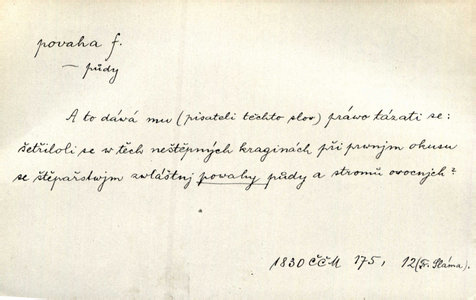 povaha f.
— půdy
A to dává mu (pisateli těchto slov) právo tázati se:
šetřiloli se w těch neštěpných kraginách při prwnjm okusu
se štěpařstwjm zwláštnj povahy půdy a stromů ovocných?
1830 ČČM 175, 12 (Fr. Sláma).